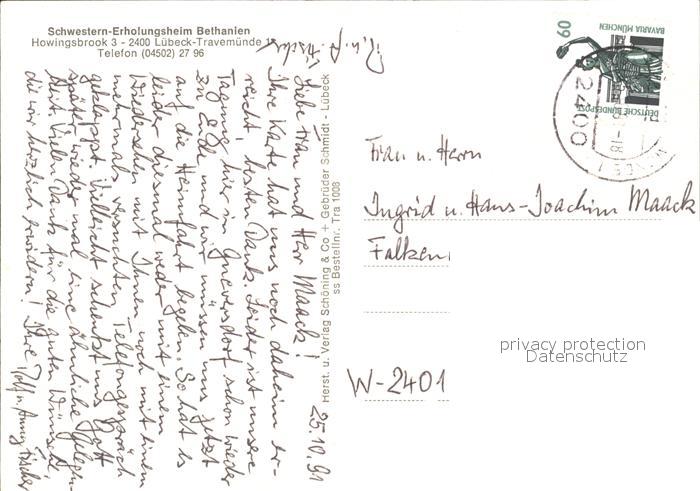 Schwestern-Erholungsheim Bethanien
Howingsbrook 3 - 2400 Lübeck-Travemünde 1
Telefon (04502) 27 96
R. u. A. Fischer
25.10.91
Liebe Frau und Herr Maack!
Ihre Karte hat uns noch daheim er-
reicht, besten Dank. Leider ist unsere
Tagung hier in Gneversdorf schon wieder
zu Ende und wir müssen uns jetzt
auf die Heimfahrt begeben. So hat es
leider diesmal weder mit einem
Wiedersehen mit Ihnen noch mit einem
mehrmals versuchten Telefongespräch
geklappt. Vielleicht schenkt uns Gott
später wieder mal eine ähnliche Gelegen-
heit. Vielen Dank für die guten Wünsche,
die wir herzlich erwidern! Ihre
Rolf u. Anny Fischer
Herst. u. Verlag Schöning & Co + Gebrüder Schmidt - Lübeck
ss Bestellnr. Tra 1008
60
BAVARIA MÜNCHEN
DEUTSCHE BUNDESPOST
2400
-18
Frau u. Herrn
Ingrid u. Hans-Joachim Maack
Falken
W-2401
privacy protection
Datenschutz